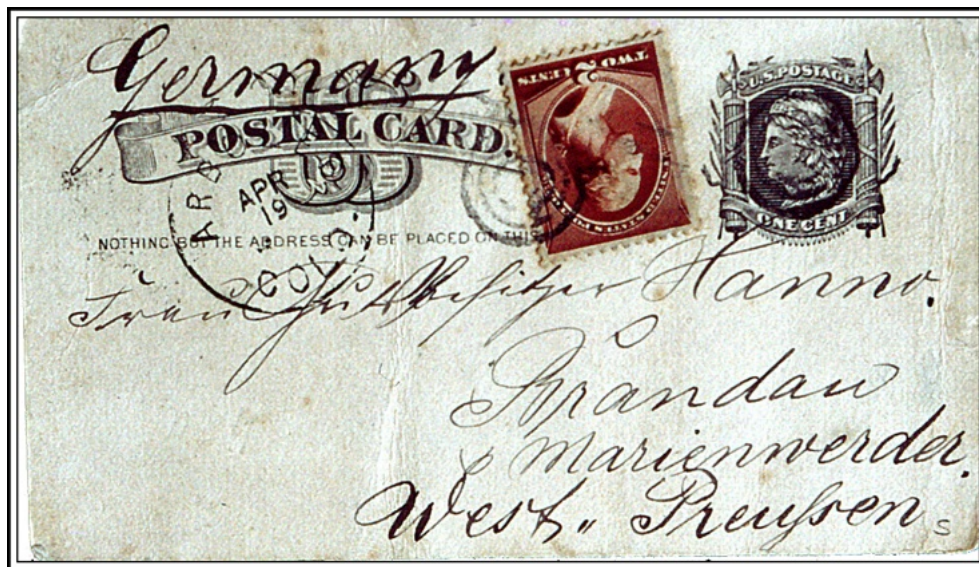 Germany
POSTAL CARD.
US
TWO 2 CENTS
U.S. POSTAGE
ONE CENT
APR
19
COLO.
NOTHING BUT THE ADDRESS CAN BE PLACED ON THIS
Frau Gutsbesitzer Hanno.
Brandau
p Marienwerder.
West-Preußen
S